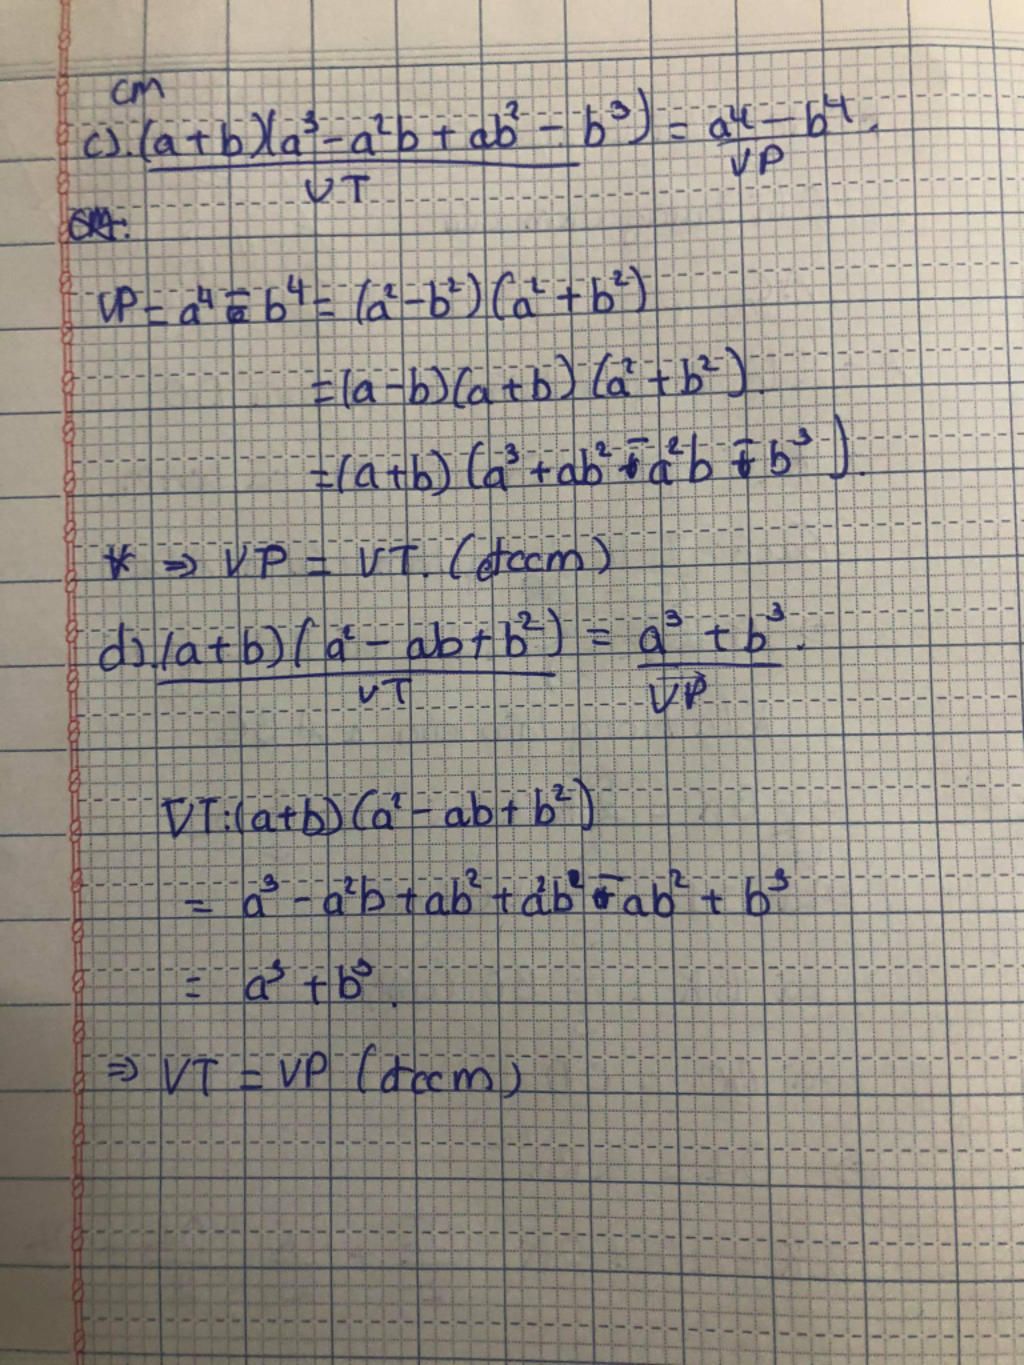 cm
c). (a+b)(a³-a²b+ab²-b³) = a⁴-b⁴.
VT VP
VP = a⁴-b⁴ = (a²-b²)(a²+b²)
=(a-b)(a+b)(a²+b²).
=(a+b)(a³+ab²-a²b-b³).
* ⇒ VP = VT. (đccm)
d). (a+b)(a²-ab+b²) = a³+b³.
VT VP
VT:(a+b)(a²-ab+b²)
= a³-a²b+ab²+a²b-ab²+b³
= a³+b³.
⇒ VT = VP (đccm)